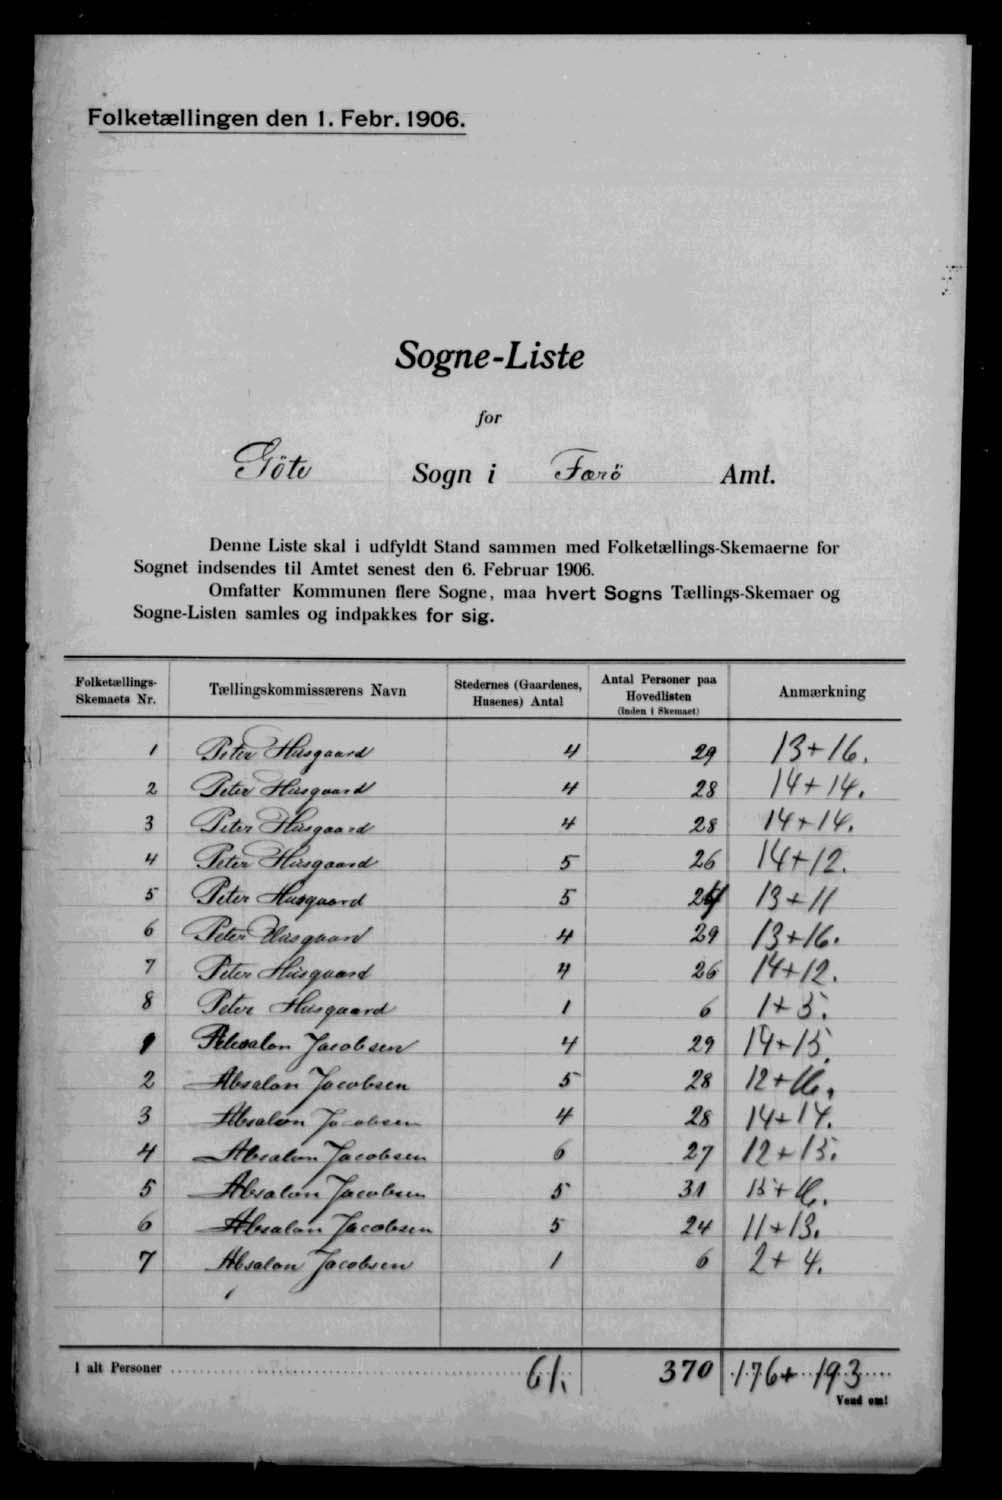 Folketællingen den 1. Febr. 1906.
Sogne-Liste
for
Göte Sogn i Færö Amt.
Denne Liste skal i udfyldt Stand sammen med Folketællings-Skemaerne for
Sognet indsendes til Amtet senest den 6. Februar 1906.
Omfatter Kommunen flere Sogne, maa hvert Sogns Tællings-Skemaer og
Sogne-Listen samles og indpakkes for sig.
Folketællings-Skemaets Nr. Tællingskommissærens Navn Stedernes (Gaardenes, Husenes) Antal Antal Personer paa Hovedlisten (Inden i Skemaet) Anmærkning
1 Peter Husgaard 4 29 13+16.
2 Peter Husgaard 4 28 14+14.
3 Peter Husgaard 4 28 14+14.
4 Peter Husgaard 5 26 14+12.
5 Peter Husgaard 5 24 13+11
6 Peter Husgaard 4 29 13+16.
7 Peter Husgaard 4 26 14+12.
8 Peter Husgaard 1 6 1+5.
1 Absalon Jacobsen 4 29 14+15.
2 Absalon Jacobsen 5 28 12+16.
3 Absalon Jacobsen 4 28 14+14.
4 Absalon Jacobsen 6 27 12+15.
5 Absalon Jacobsen 5 31 15+16.
6 Absalon Jacobsen 5 24 11+13.
7 Absalon Jacobsen 1 6 2+4.
I alt Personer 61. 370 176+193
Vend om!